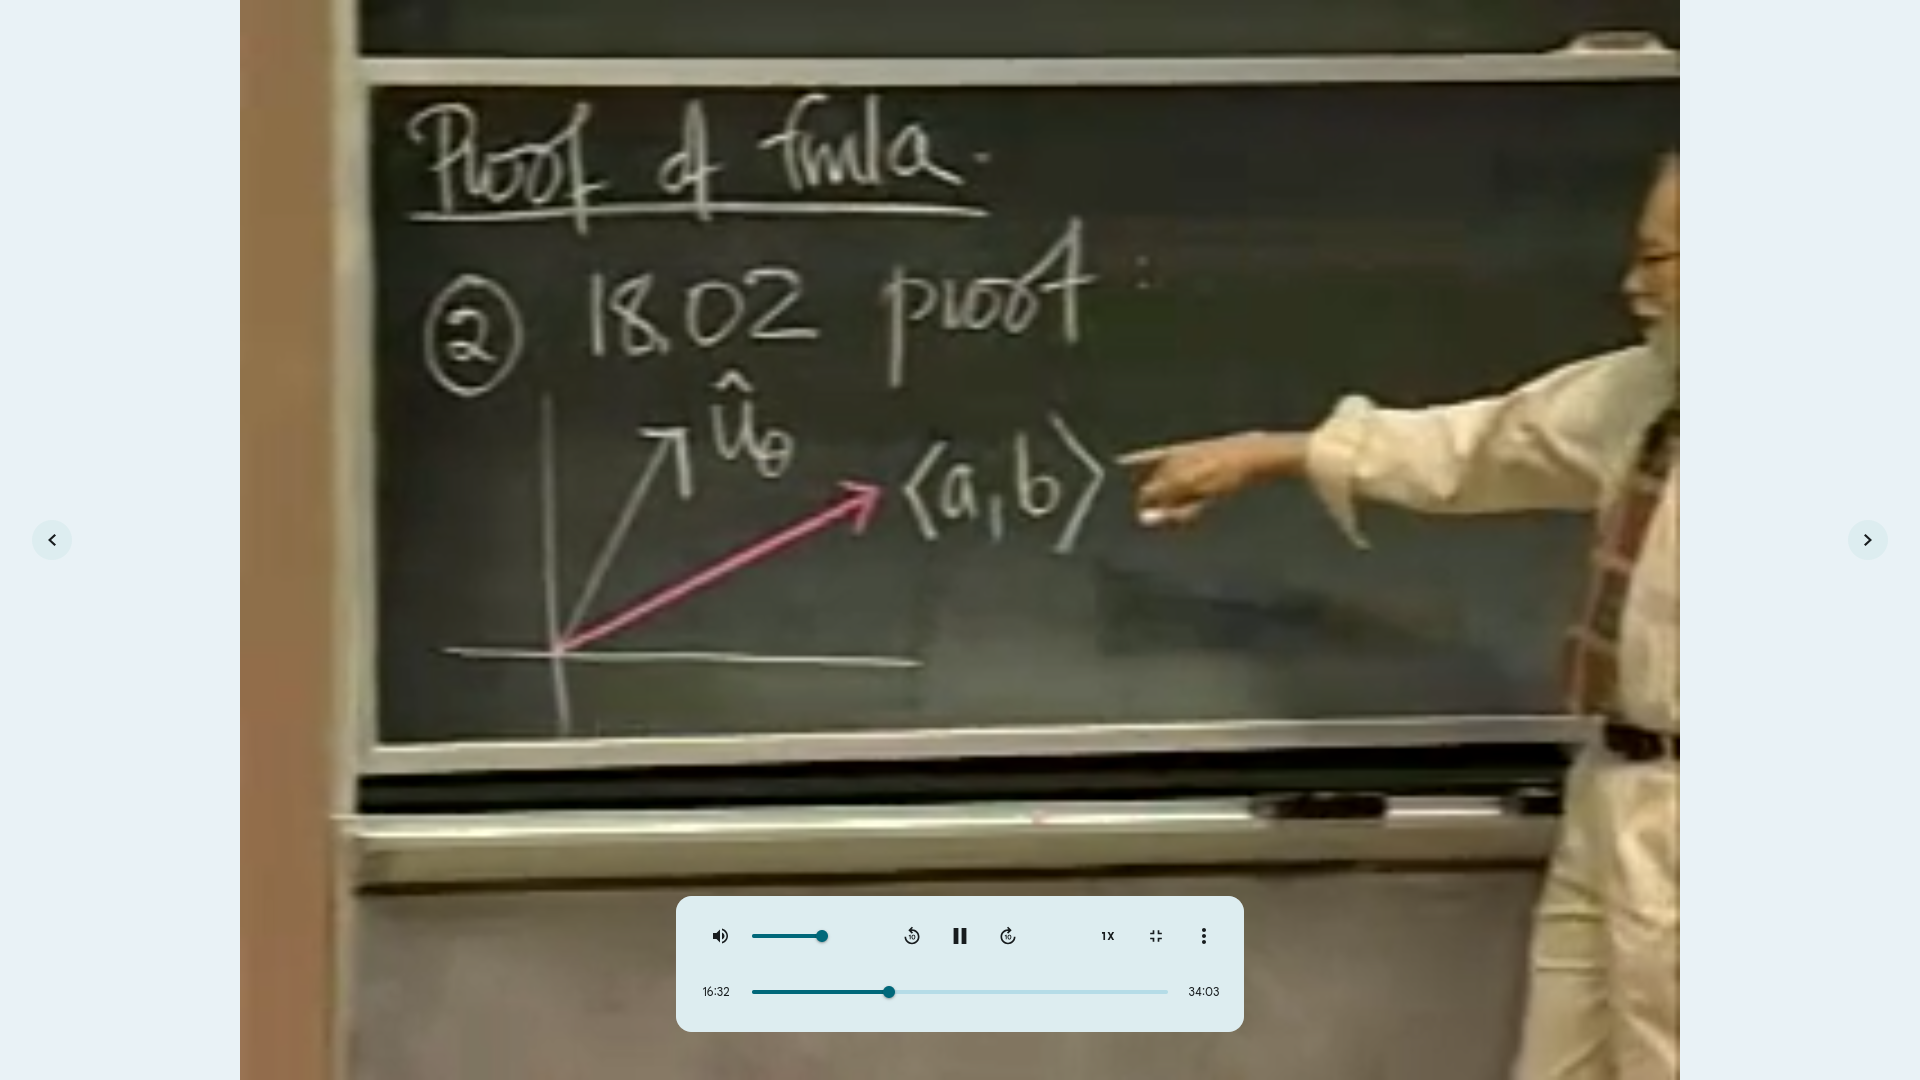 Proof of fmla.
② 18.02 proof :
û_θ
⟨a, b⟩
1X
16:32
34:03